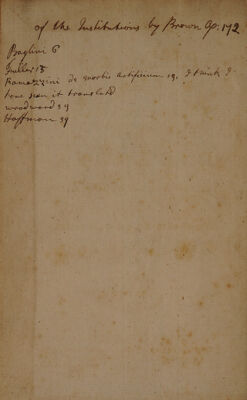 of the Institutions by Brown Ap. 192
Baglivi 6
Fuller 15
Ramazzini de morbis artificum 19. I think I
have seen it translated
woodward 39
Hoffman 39